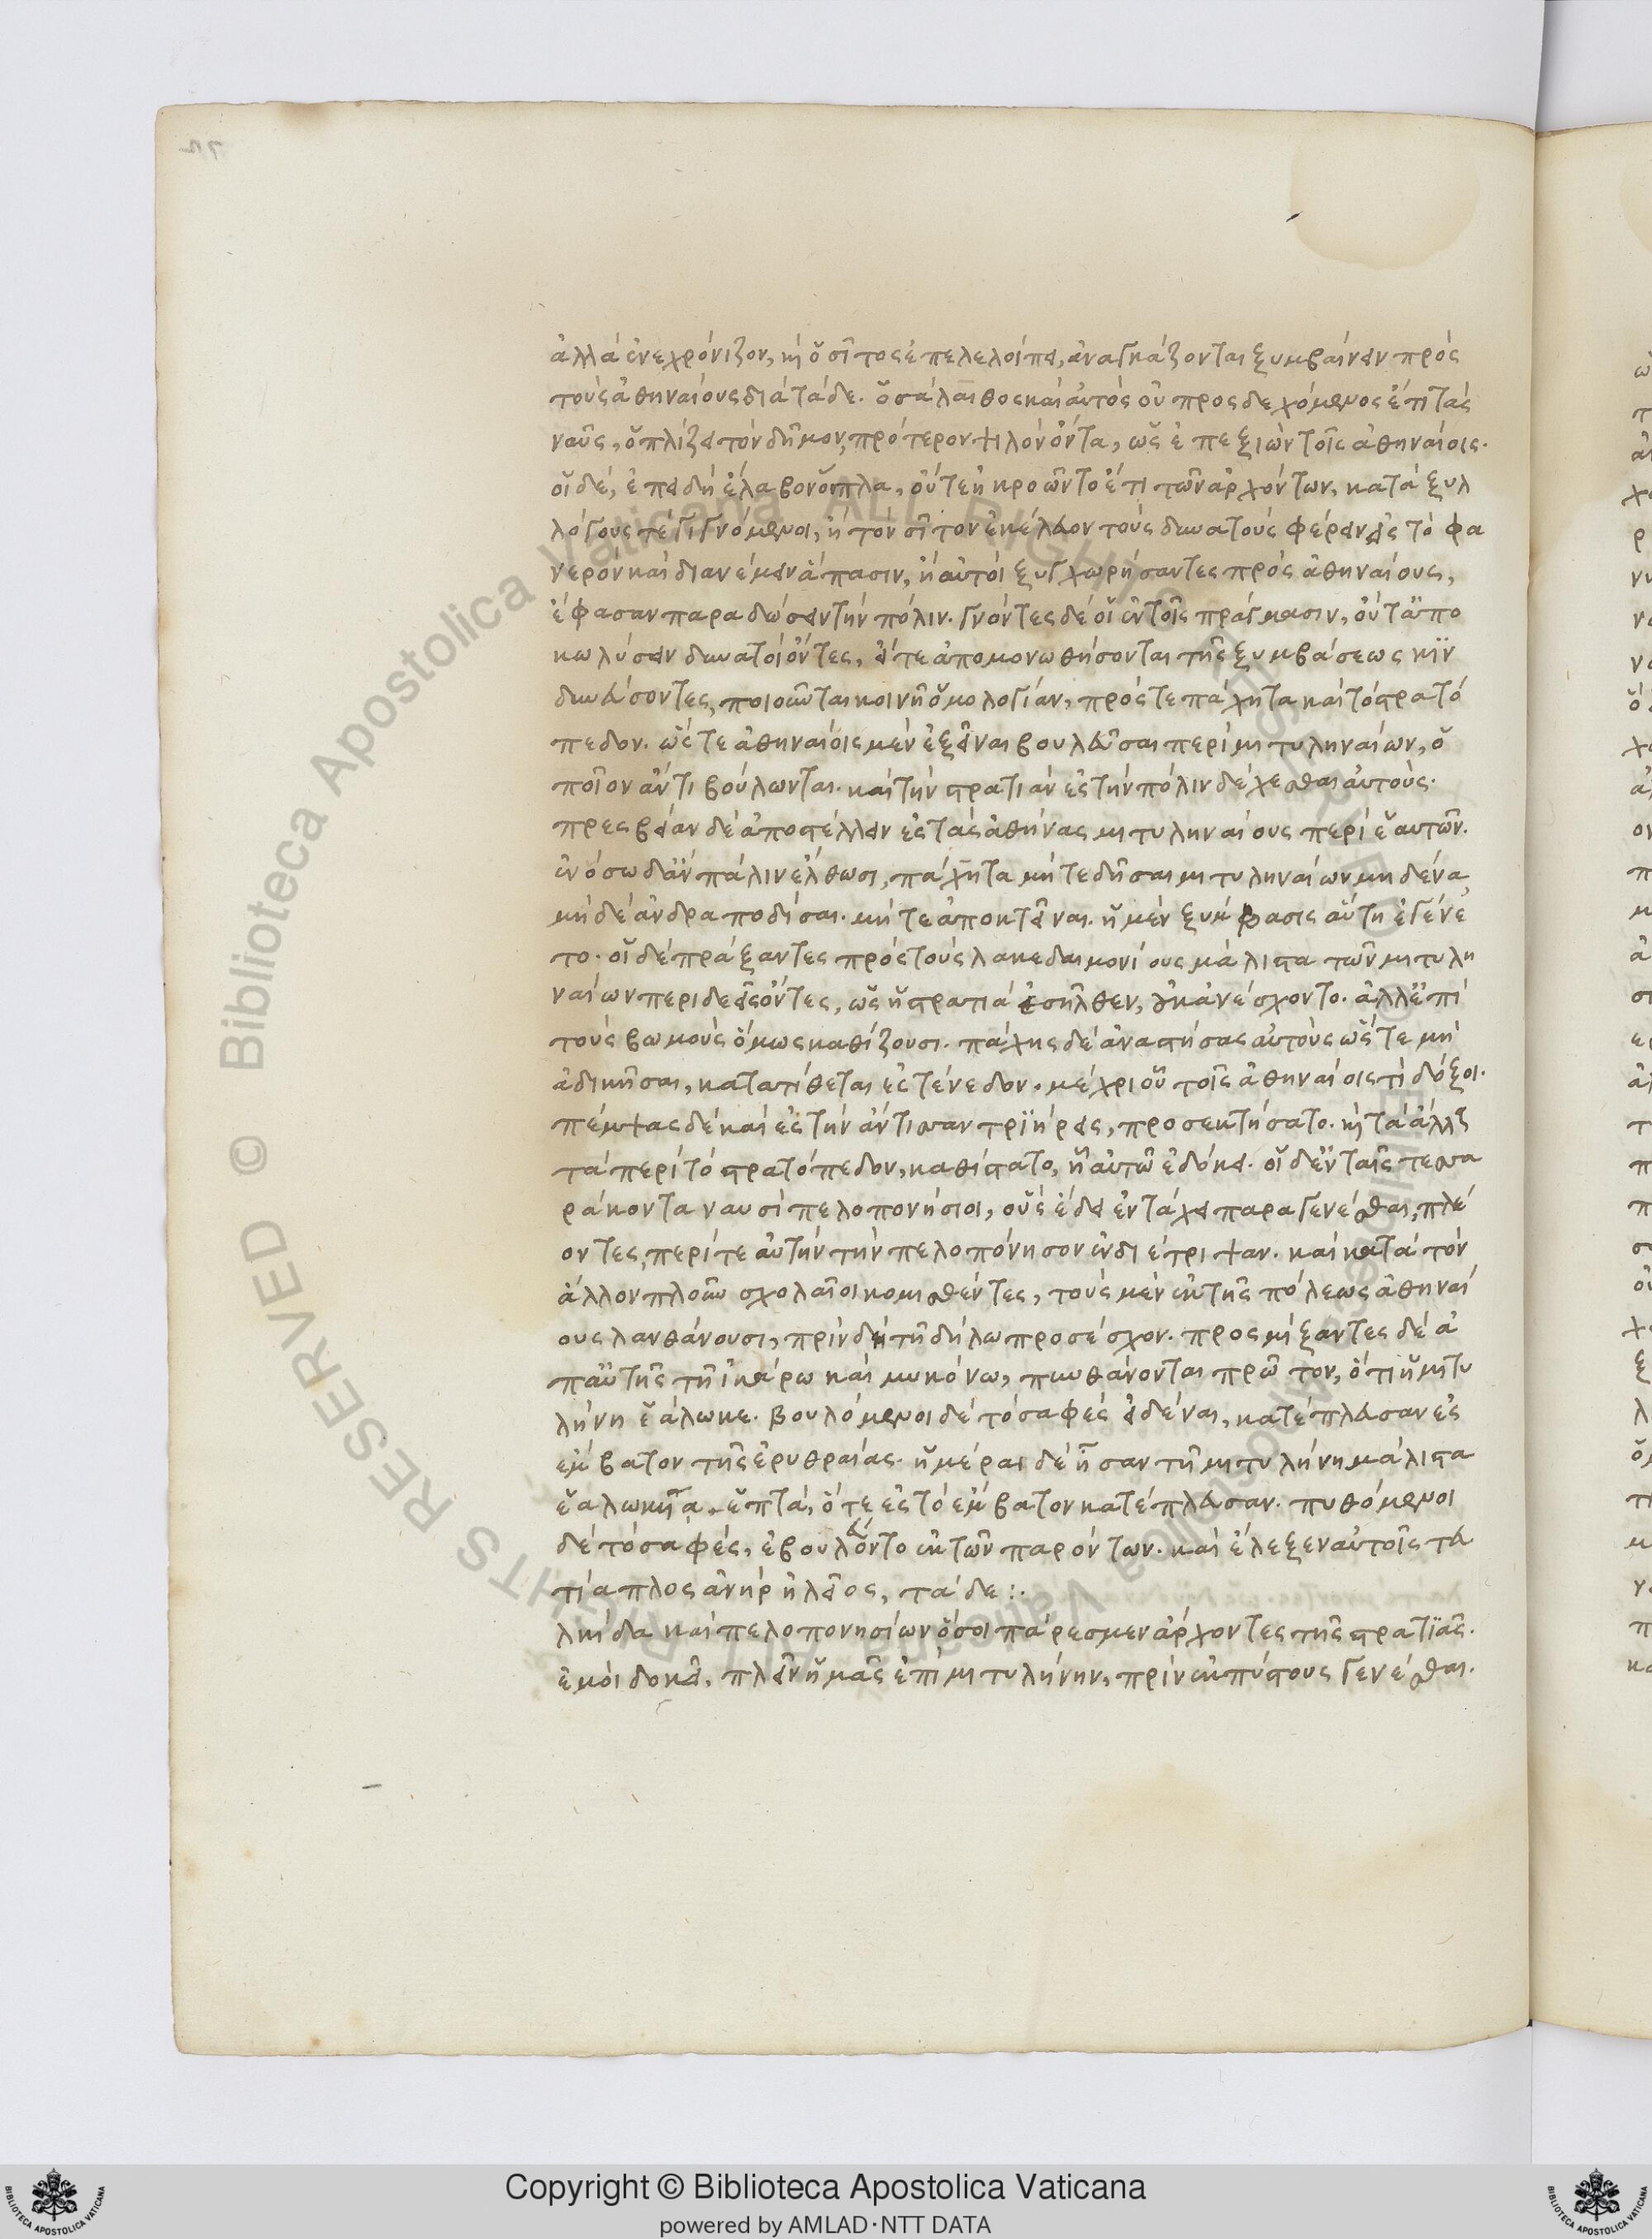 ἀλλὰ ἐνεχρόνιζον, καὶ ὁ σῖτος ἐπελελοίπει, ἀναγκάζονται ξυμβαίνειν πρὸς
τοὺς ἀθηναίους διὰ τάδε. ὁ σάλαιθος καὶ αὐτὸς οὐ προσδεχόμενος ἔτι τὰς
ναῦς, ὁπλίζει τὸν δῆμον, πρότερον ψιλὸν ὄντα, ὡς ἐπεξιὼν τοῖς ἀθηναίοις.
οἱ δὲ, ἐπειδὴ ἔλαβον ὅπλα, οὔτε ἠκροῶντο ἔτι τῶν ἀρχόντων, κατὰ ξυλ
λόγους τὲ γιγνόμενοι, ἢ τὸν σῖτον ἐκέλευον τοὺς δυνατοὺς φέρειν εἰς τὸ φα
νερὸν καὶ διανέμειν ἅπασιν, ἢ αὐτοὶ ξυγχωρήσαντες πρὸς ἀθηναίους,
ἔφασαν παραδώσειν τὴν πόλιν. γνόντες δὲ οἱ ἐν τοῖς πράγμασιν, οὔτ' ἀπο
κωλύσειν δυνατοὶ ὄντες, εἴτε ἀπομονωθήσονται τῆς ξυμβάσεως κιν
δυνεύσοντες, ποιοῦνται κοινῇ ὁμολογίαν, πρός τε πάχητα καὶ τὸ στρατό
πεδον. ὥστε ἀθηναίοις μὲν ἐξεῖναι βουλεῦσαι περὶ μιτυληναίων, ὁ
ποῖον ἄν τι βούλωνται. καὶ τὴν στρατιὰν ἐς τὴν πόλιν δέχεσθαι αὐτούς.
πρεσβείαν δὲ ἀποστέλλειν ἐς τὰς ἀθήνας μιτυληναίους περὶ ἑαυτῶν.
ἐν ὅσω δ' ἂν πάλιν ἔλθωσι, πάχητα μήτε δῆσαι μιτυληναίων μηδένα,
μηδὲ ἀνδραποδίσαι. μήτε ἀποκτεῖναι. ἡ μὲν ξύμβασις αὕτη ἐγένε
το. οἱ δὲ πράξαντες πρὸς τοὺς λακεδαιμονίους μάλιστα τῶν μιτυλη
ναίων περιδεεῖς ὄντες, ὡς ἡ στρατιὰ ἐσῆλθεν, οὐκ ἀνέσχοντο. ἀλλ' ἐπὶ
τοὺς βωμοὺς ὅμως καθίζουσι. πάχης δὲ ἀναστήσας αὐτοὺς ὥστε μὴ
ἀδικῆσαι, κατατίθεται ἐς τένεδον. μέχρι οὗ τοῖς ἀθηναίοις τὶ δόξοι.
πέμψας δὲ καὶ ἐς τὴν ἄντισσαν τριήρεις, προσεκτήσατο. καὶ τὰ ἄλλα
τὰ περὶ τὸ στρατόπεδον, καθίστατο, ἧ αὐτῶ ἐδόκει. οἱ δ' ἐν ταῖς τεσσα
ράκοντα ναυσὶ πελοπονήσιοι, οὓς ἔδει ἐν τάχει παραγενέσθαι, πλέ
οντες, περί τε αὐτὴν τὴν πελοπόνησον ἐνδιέτριψαν. καὶ κατὰ τὸν
ἄλλον πλοῦν σχολαῖοι κομισθέντες, τοὺς μὲν ἐκ τῆς πόλεως ἀθηναί
ους λανθάνουσι, πρὶν δὴ τῆ δήλω προσέσχον. προσμίξαντες δὲ ἀ
π' αὐτῆς τῆ ἰκάρω καὶ μυκόνω, πυνθάνονται πρῶτον, ὅτι ἡ μιτυ
λήνη ἑάλωκε. βουλόμενοι δὲ τὸ σαφὲς εἰδέναι, κατέπλευσαν ἐς
ἔμβατον τῆς ἐρυθραίας. ἡμέραι δὲ ἦσαν τῆ μιτυλήνη μάλιστα
ἑαλωκυῖα, ἑπτά, ὅτε ἐς τὸ ἔμβατον κατέπλευσαν. πυθόμενοι
δὲ τὸ σαφές, ἐβουλεύοντο ἐκ τῶν παρόντων. καὶ ἔλεξεν αὐτοῖς τευ
τίαπλος ἀνὴρ ἠλεῖος, τάδε :.
λκίδα καὶ πελοπονησίων ὅσοι πάρεσμεν ἄρχοντες τῆς στρατιᾶς.
ἐμοὶ δοκεῖ, πλεῖν ἡμᾶς ἐπὶ μιτυλήνην, πρὶν ἐκπύστους γενέσθαι.
© Biblioteca Apostolica Vaticana ALL RIGHTS RESERVED
Copyright © Biblioteca Apostolica Vaticana
powered by AMLAD·NTT DATA